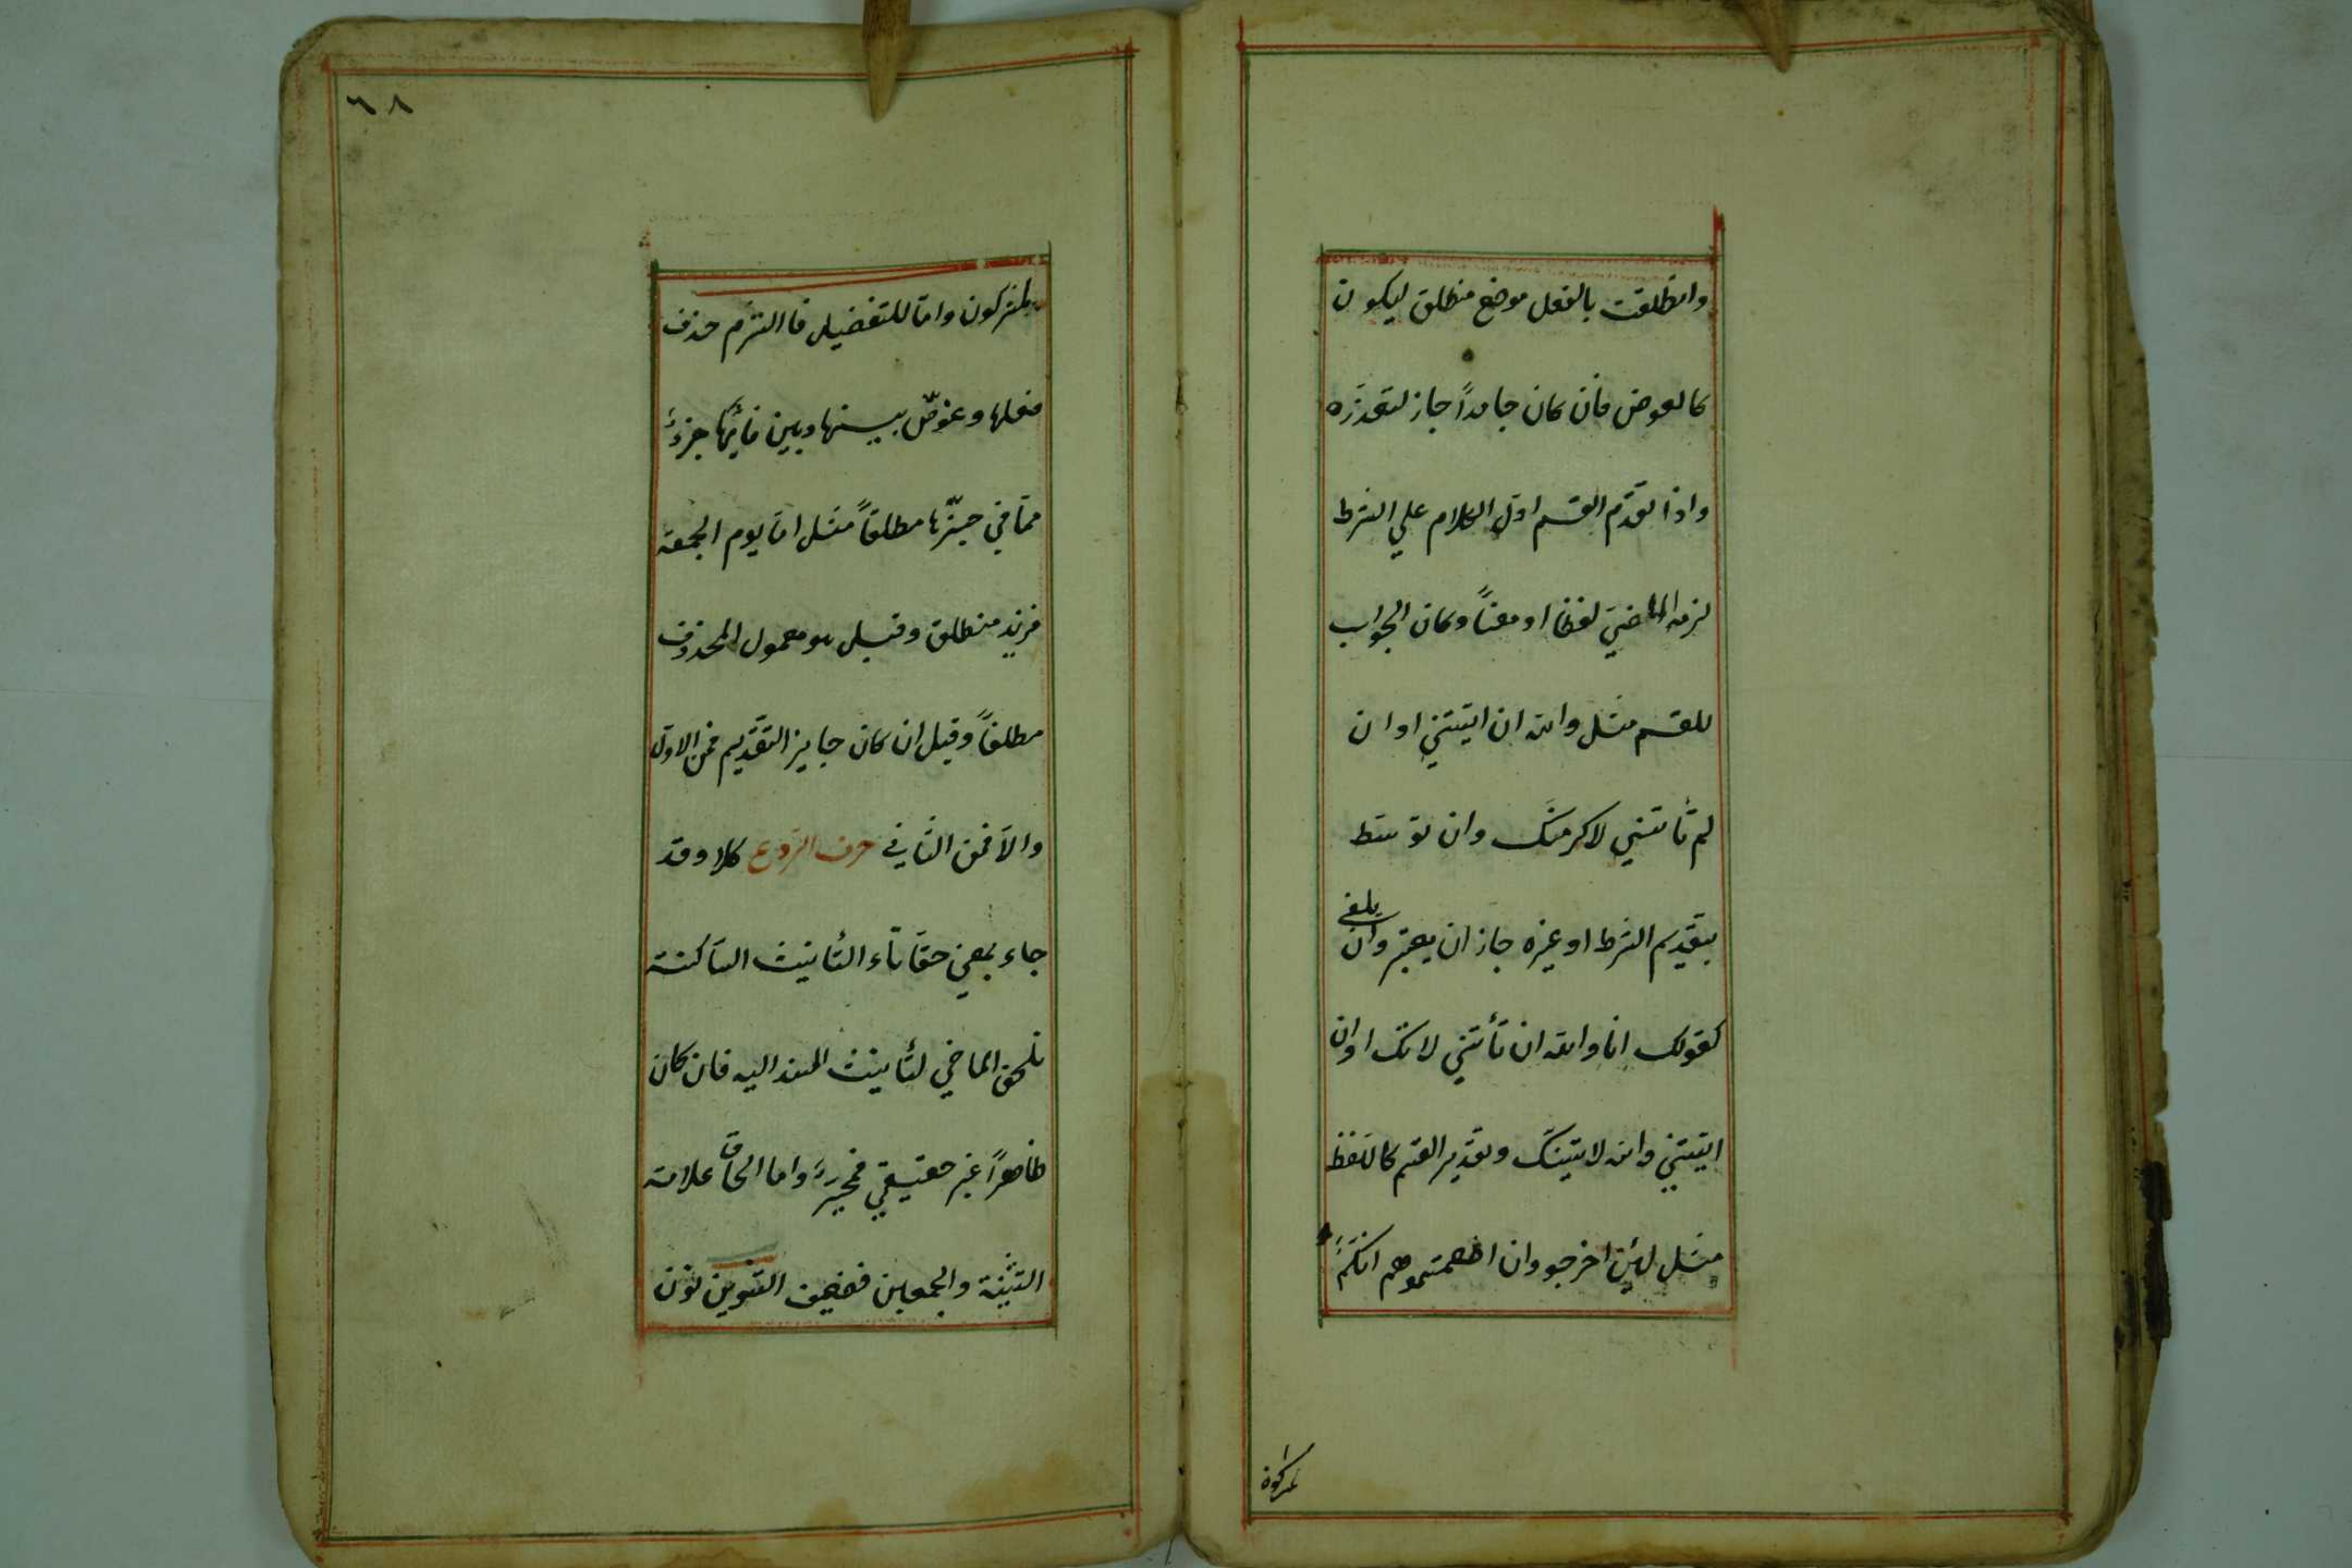 وانطلقت بالفعل موضع منطلق ليكون
كالعوض فان كان جامداً جاز لتعذره
واذا تقدّم القسم اوّل الكلام علي الشرط
لزمه الماضيَ لفظا او معناً وكان الجواب
للقسم مثل والله ان اتيتني او ان
لم تأتني لاكرمتك وان توسّط
بتقديم الشرط او غيره جاز ان يعتبر وان يلغى
كقولك انا والله ان تأتني لاتك او ان
اتيتني والله لاتينّك وتقدير القسم كاللفظ
مثل لئن اخرجو وان اطعمتموهم انكم
لمشركون
٦٨
لمشركون وامّا للتفضيل فاالتزم حذف
فعلها وعوّض بينها وبين فائها جزءٌ
ممّا في حيّزها مطلقاً مثل امّا يوم الجمعة
فزيد منطلق وقيل هو معمول المحذوف
مطلقاً وقيل ان كان جايز التقديم فمن الاوّل
والاّ فمن الثاني حرف الرّدع كلا وقد
جاء بمعني حقاً تاء التأنيث السّاكنة
تلحق الماضي لتأنيث المسند اليه فان كان
ظاهراً غير حقيقي فمخير واما الحاق علامة
التثنية والجمعين فضعيف التنوين نون